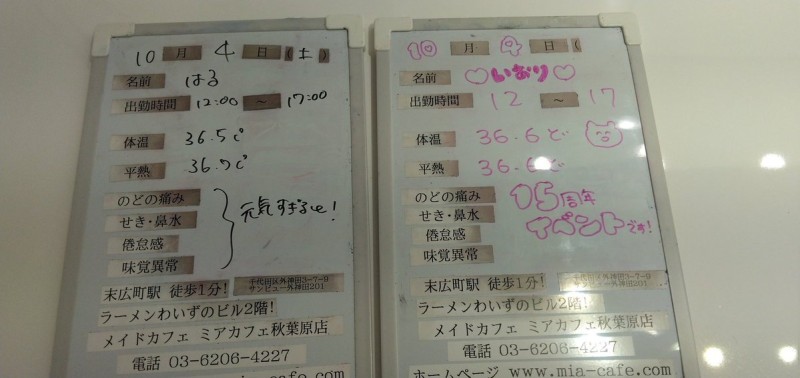 10月4日(土)
名前 はる
出勤時間 12:00 ~ 17:00
体温 36.5℃
平熱 36.7℃
のどの痛み
せき・鼻水
倦怠感
味覚異常
元気すぎるって!
末広町駅 徒歩1分!
千代田区外神田3-7-9
サンビュー外神田201
ラーメンわいずのビル2階!
メイドカフェ ミアカフェ秋葉原店
電話 03-6206-4227
www.mia-cafe.com
10月4日(
名前 ♡いおり♡
出勤時間 12 ~ 17
体温 36.6ど
平熱 36.6ど
のどの痛み
せき・鼻水
倦怠感
味覚異常
15周年
イベントです!
末広町駅 徒歩1分!
千代田区外神田3-7-9
サンビュー外神田201
ラーメンわいずのビル2階!
メイドカフェ ミアカフェ秋葉原店
電話 03-6206-4227
ホームページ www.mia-cafe.com